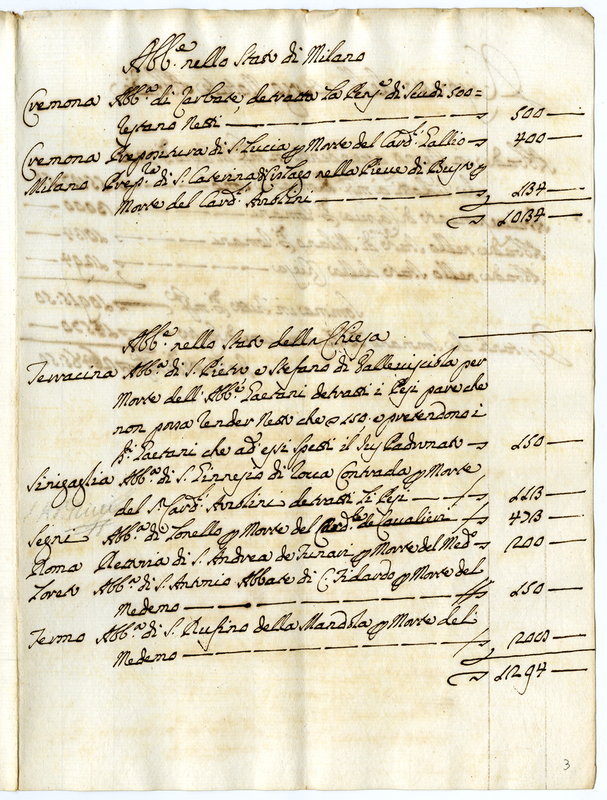 Abb.e nello Stato di Milano
Cremona Abb.a di detratta La Pens.e di Scudi 500=
Restano Netti 500
Cremona Prepositura di S. Lucia p Morte del Card. Gallio 400
Milano Prep.ra di S. Caterina nella Pieve di p
Morte del Card. 134
1034
Abb.e nello Stato della Chiesa
Terracina Abb.a di S. Pietro e Stefano di per
Morte dell'Abb.e Gaetani detratti i Pesi pare che
non possa render Netto che 150. e pretendono i
Gaetani che ad essi spetti il Jus Padronato 150
Sinigaglia Abb.a di S. Ginnesio di Rocca Contrada p Morte
del S. Card. detratti li Pesi 113
Segni Abb.a di p Morte del de Cavalieri
Roma Rettoria di S. Andrea de Funari p Morte del Med.o 200
Loreto Abb.a di S. Antonio Abbate di C. Fidardo p Morte del
Medemo 150
Fermo Abb.a di S. Rufino della Mandola p Morte del
Medemo
1294
3